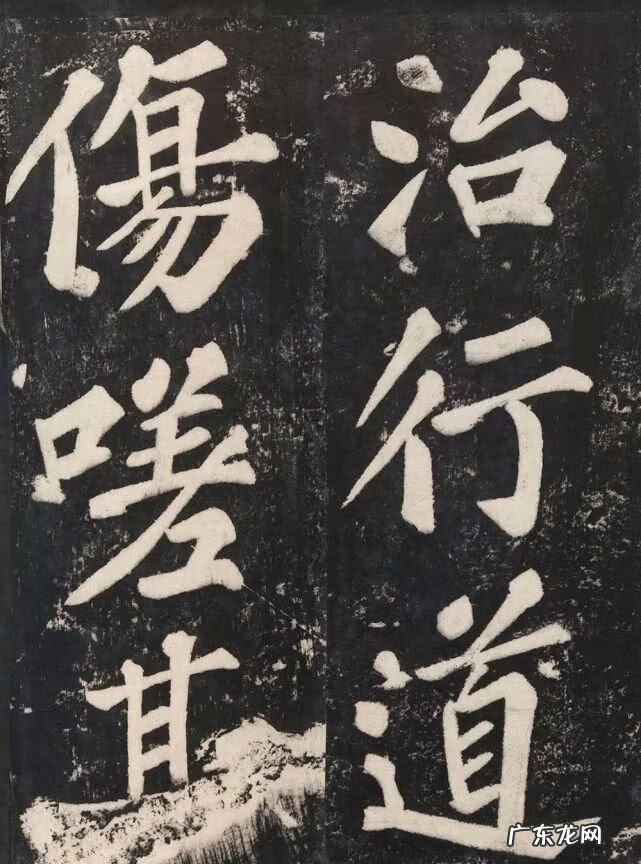 治行道
傷嗟
广东龙网